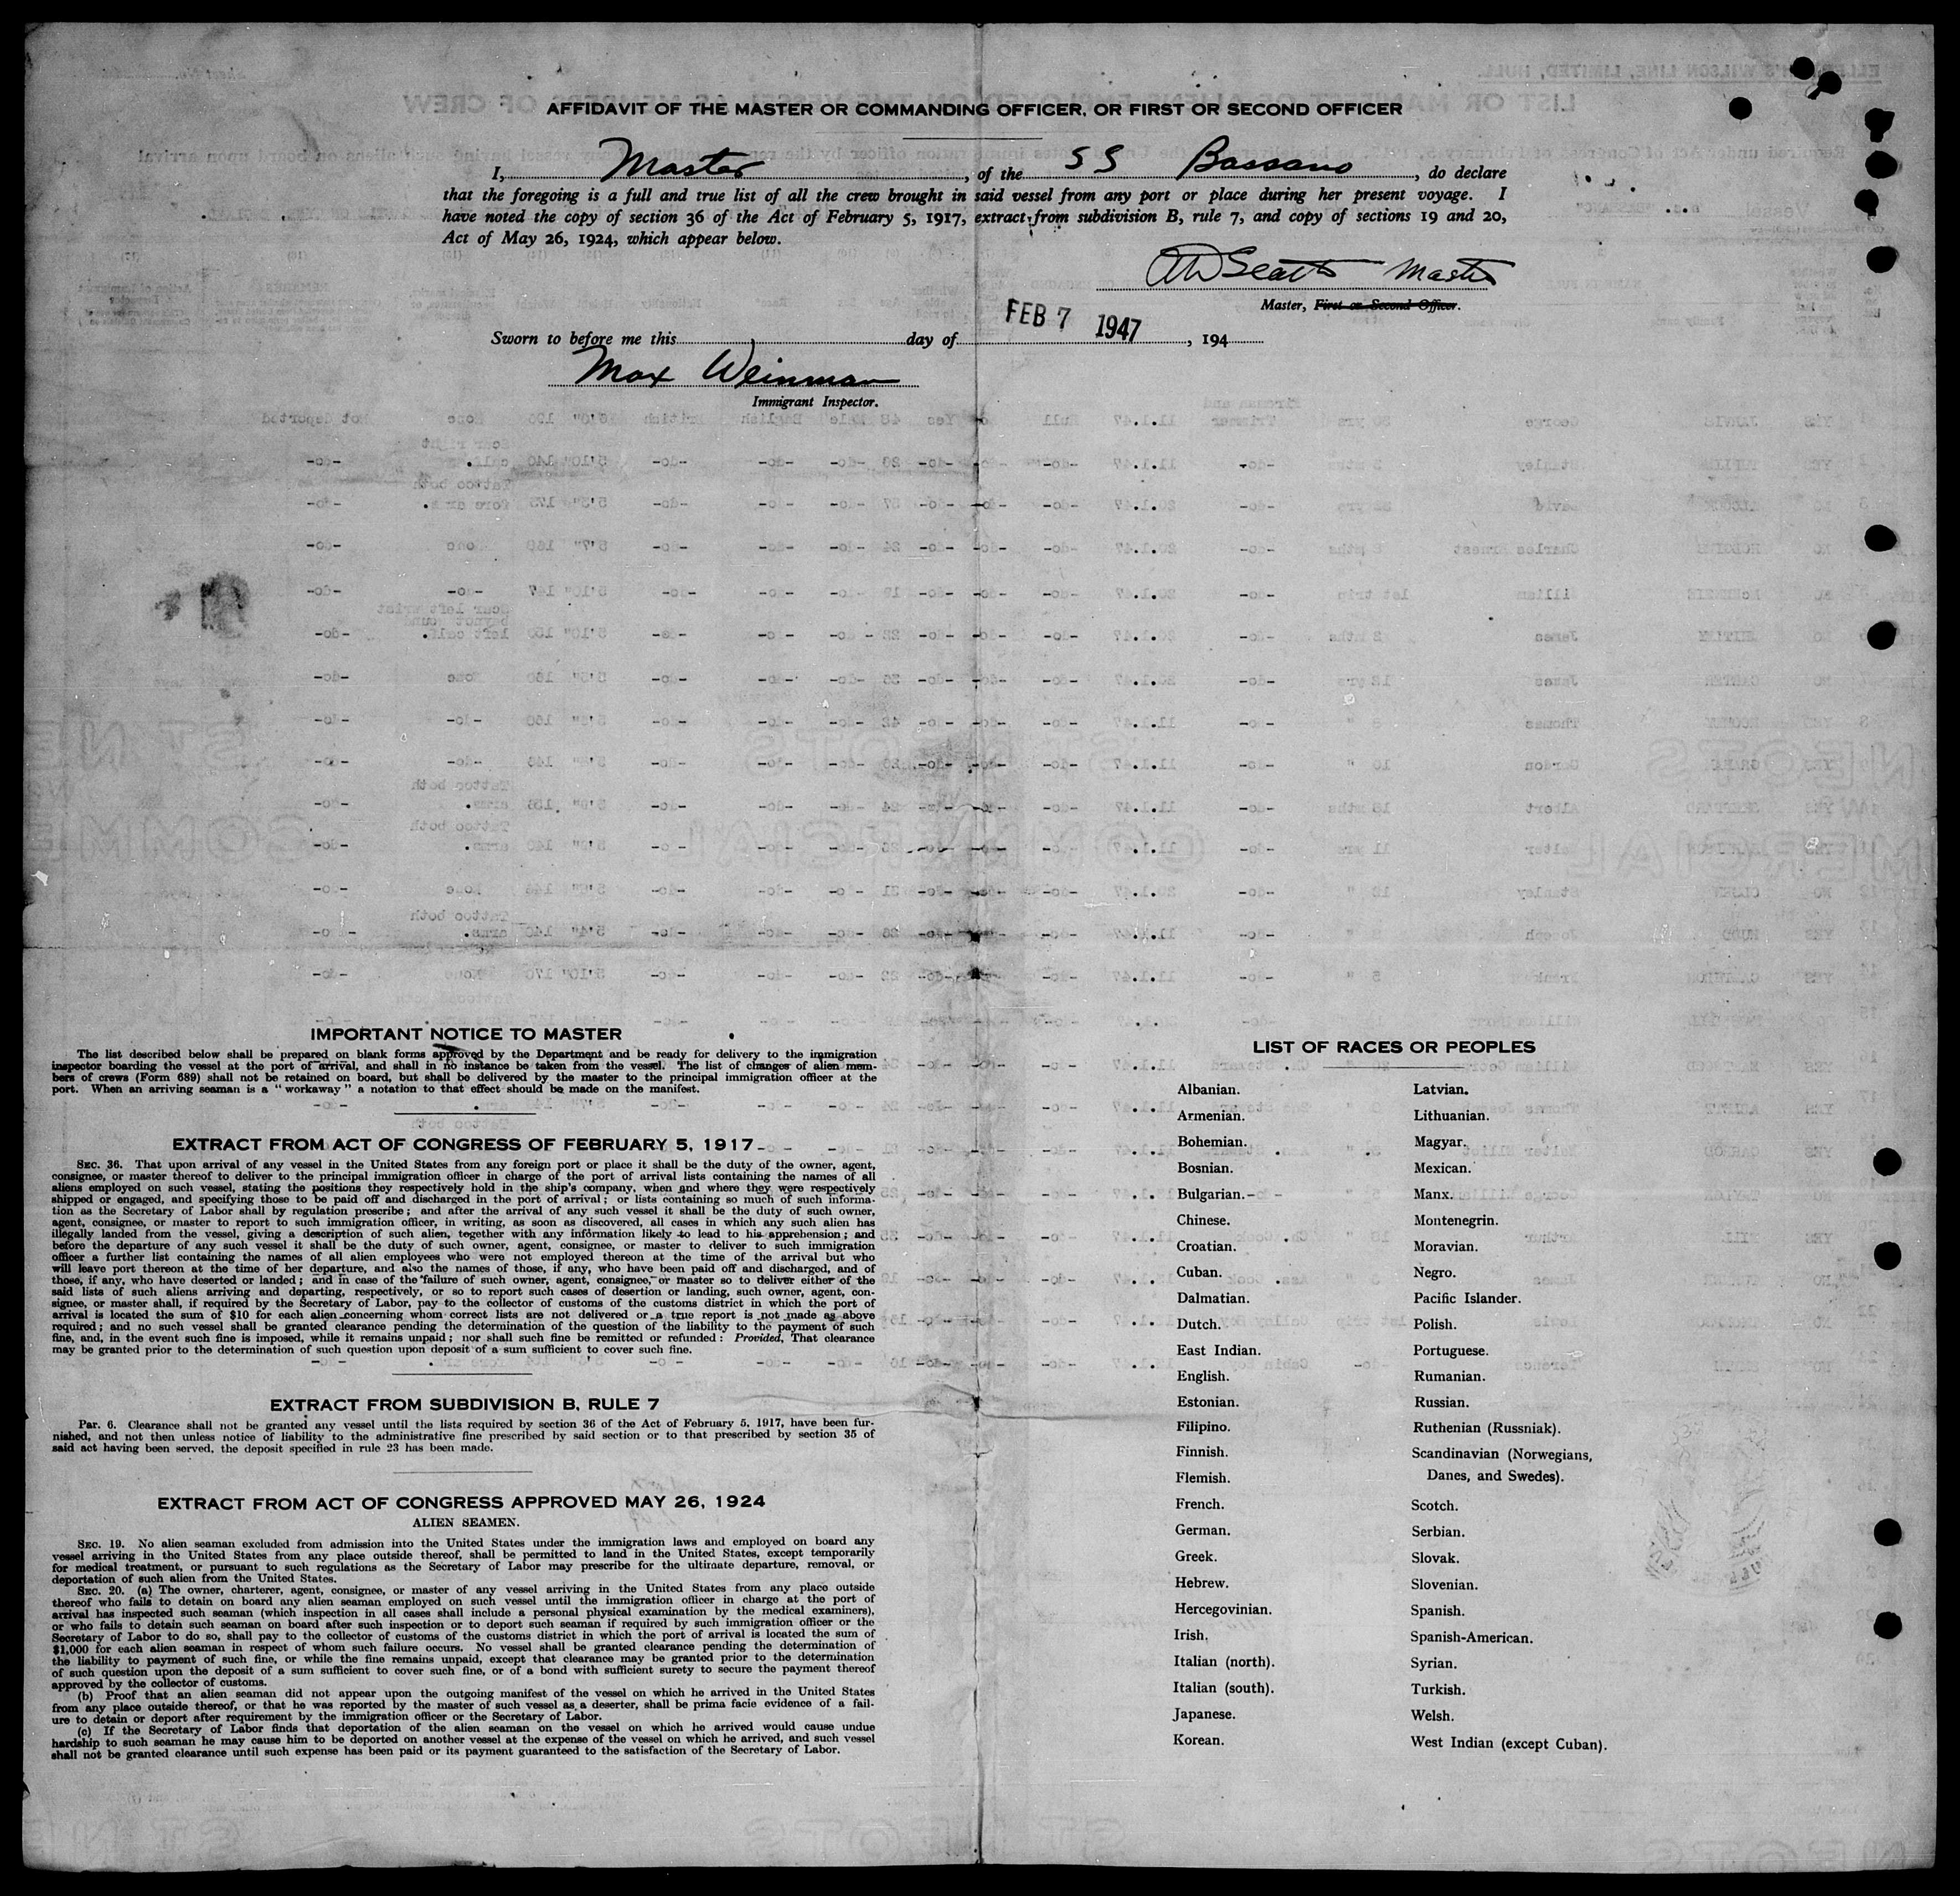 AFFIDAVIT OF THE MASTER OR COMMANDING OFFICER, OR FIRST OR SECOND OFFICER
I, Master, of the SS Bassano, do declare
that the foregoing is a full and true list of all the crew brought in said vessel from any port or place during her present voyage. I
have noted the copy of section 36 of the Act of February 5, 1917, extract from subdivision B, rule 7, and copy of sections 19 and 20,
Act of May 26, 1924, which appear below.
Master
Master, First or Second Officer.
FEB 7 1947
Sworn to before me this day of , 194
Max Weinman
Immigrant Inspector.
IMPORTANT NOTICE TO MASTER
The list described below shall be prepared on blank forms approved by the Department and be ready for delivery to the immigration
inspector boarding the vessel at the port of arrival, and shall in no instance be taken from the vessel. The list of changes of alien mem-
bers of crews (Form 689) shall not be retained on board, but shall be delivered by the master to the principal immigration officer at the
port. When an arriving seaman is a "workaway" a notation to that effect should be made on the manifest.
EXTRACT FROM ACT OF CONGRESS OF FEBRUARY 5, 1917
SEC. 36. That upon arrival of any vessel in the United States from any foreign port or place it shall be the duty of the owner, agent,
consignee, or master thereof to deliver to the principal immigration officer in charge of the port of arrival lists containing the names of all
aliens employed on such vessel, stating the positions they respectively hold in the ship's company, when and where they were respectively
shipped or engaged, and specifying those to be paid off and discharged in the port of arrival; or lists containing so much of such informa-
tion as the Secretary of Labor shall by regulation prescribe; and after the arrival of any such vessel it shall be the duty of such owner,
agent, consignee, or master to report to such immigration officer, in writing, as soon as discovered, all cases in which any such alien has
illegally landed from the vessel, giving a description of such alien, together with any information likely to lead to his apprehension; and
before the departure of any such vessel it shall be the duty of such owner, agent, consignee, or master to deliver to such immigration
officer a further list containing the names of all alien employees who were not employed thereon at the time of the arrival but who
will leave port thereon at the time of her departure, and also the names of those, if any, who have been paid off and discharged, and of
those, if any, who have deserted or landed; and in case of the failure of such owner, agent, consignee, or master so to deliver either of the
said lists of such aliens arriving and departing, respectively, or so to report such cases of desertion or landing, such owner, agent, con-
signee, or master shall, if required by the Secretary of Labor, pay to the collector of customs of the customs district in which the port of
arrival is located the sum of $10 for each alien concerning whom correct lists are not delivered or a true report is not made as above
required; and no such vessel shall be granted clearance pending the determination of the question of the liability to the payment of such
fine, and, in the event such fine is imposed, while it remains unpaid; nor shall such fine be remitted or refunded: Provided, That clearance
may be granted prior to the determination of such question upon deposit of a sum sufficient to cover such fine.
EXTRACT FROM SUBDIVISION B, RULE 7
Par. 6. Clearance shall not be granted any vessel until the lists required by section 36 of the Act of February 5, 1917, have been fur-
nished, and not then unless notice of liability to the administrative fine prescribed by said section or to that prescribed by section 35 of
said act having been served, the deposit specified in rule 23 has been made.
EXTRACT FROM ACT OF CONGRESS APPROVED MAY 26, 1924
ALIEN SEAMEN.
SEC. 19. No alien seaman excluded from admission into the United States under the immigration laws and employed on board any
vessel arriving in the United States from any place outside thereof, shall be permitted to land in the United States, except temporarily
for medical treatment, or pursuant to such regulations as the Secretary of Labor may prescribe for the ultimate departure, removal, or
deportation of such alien from the United States.
SEC. 20. (a) The owner, charterer, agent, consignee, or master of any vessel arriving in the United States from any place outside
thereof who fails to detain on board any alien seaman employed on such vessel until the immigration officer in charge at the port of
arrival has inspected such seaman (which inspection in all cases shall include a personal physical examination by the medical examiners),
or who fails to detain such seaman on board after such inspection or to deport such seaman if required by such immigration officer or the
Secretary of Labor to do so, shall pay to the collector of customs of the customs district in which the port of arrival is located the sum of
$1,000 for each alien seaman in respect of whom such failure occurs. No vessel shall be granted clearance pending the determination of
the liability to payment of such fine, or while the fine remains unpaid, except that clearance may be granted prior to the determination
of such question upon the deposit of a sum sufficient to cover such fine, or of a bond with sufficient surety to secure the payment thereof
approved by the collector of customs.
(b) Proof that an alien seaman did not appear upon the outgoing manifest of the vessel on which he arrived in the United States
from any place outside thereof, or that he was reported by the master of such vessel as a deserter, shall be prima facie evidence of a fail-
ure to detain or deport after requirement by the immigration officer or the Secretary of Labor.
(c) If the Secretary of Labor finds that deportation of the alien seaman on the vessel on which he arrived would cause undue
hardship to such seaman he may cause him to be deported on another vessel at the expense of the vessel on which he arrived, and such vessel
shall not be granted clearance until such expense has been paid or its payment guaranteed to the satisfaction of the Secretary of Labor.
LIST OF RACES OR PEOPLES
Albanian.
Armenian.
Bohemian.
Bosnian.
Bulgarian.
Chinese.
Croatian.
Cuban.
Dalmatian.
Dutch.
East Indian.
English.
Estonian.
Filipino.
Finnish.
Flemish.
French.
German.
Greek.
Hebrew.
Hercegovinian.
Irish.
Italian (north).
Italian (south).
Japanese.
Korean.
Latvian.
Lithuanian.
Magyar.
Mexican.
Manx.
Montenegrin.
Moravian.
Negro.
Pacific Islander.
Polish.
Portuguese.
Rumanian.
Russian.
Ruthenian (Russniak).
Scandinavian (Norwegians,
Danes, and Swedes).
Scotch.
Serbian.
Slovak.
Slovenian.
Spanish.
Spanish-American.
Syrian.
Turkish.
Welsh.
West Indian (except Cuban).